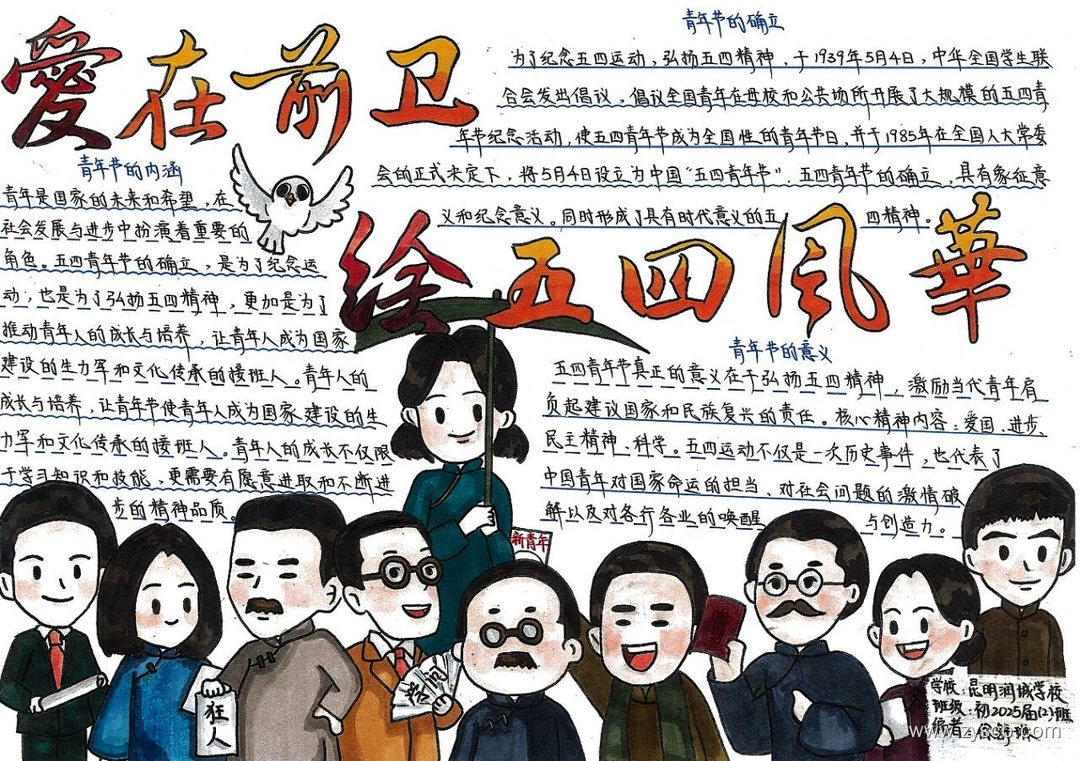 愛在前卫
绘五四风華
青年节的确立
为了纪念五四运动，弘扬五四精神，于1939年5月4日，中华全国学生联
合会发出倡议，倡议全国青年在母校和公共场所开展了大规模的五四青
年节纪念活动，使五四青年节成为全国性的青年节日，并于1985年在全国人大常委
会的正式决定下，将5月4日设立为中国“五四青年节”．五四青年节的确立，具有象征意
义和纪念意义。同时形成了具有时代意义的五 四精神。
青年节的内涵
青年是国家的未来和希望，在
社会发展与进步中扮演着重要的
角色。五四青年节的确立，是为了纪念运
动，也是为了弘扬五四精神，更加是为了
推动青年人的成长与培养，让青年人成为国家
建设的生力军和文化传承的接班人。青年人的
成长与培养，让青年节使青年人成为国家建设的生
力军和文化传承的接班人。青年人的成长不仅限
于学习知识和技能，更需要有愿意进取和不断进
步的精神品质。
青年节的意义
五四青年节真正的意义在于弘扬五四精神，激励当代青年肩
负起建议国家和民族复兴的责任。核心精神内容：爱国、进步、
民主精神、科学。五四运动不仅是一次历史事件，也代表了
中国青年对国家命运的担当、对社会问题的激情破
解以及对各行各业的唤醒 与创造力。
新青年
狂
人
学校：昆明润城学校
班级：初2025届(2)班
编者